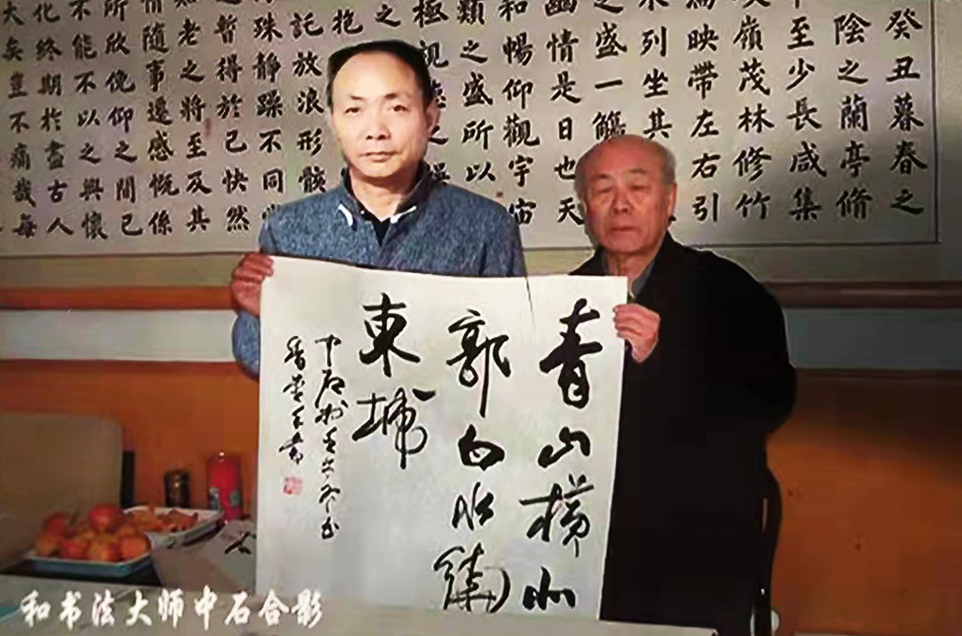 癸丑暮春之
陰之蘭亭脩
至少長咸集
嶺茂林修竹
映帶左右引
列坐其
之盛一觴
幽情是日也天
和暢仰觀宇宙
類之盛所以
極視
抱
託放浪形骸
殊静躁不同
暫得於己快然
知老之將至及其
情隨事遷感慨係
所欣俛仰之間已
不能不以之興懷
化終期於盡古人
大矣豈不痛哉每
青山横北
郭白水繞
東城
和书法大师中石合影